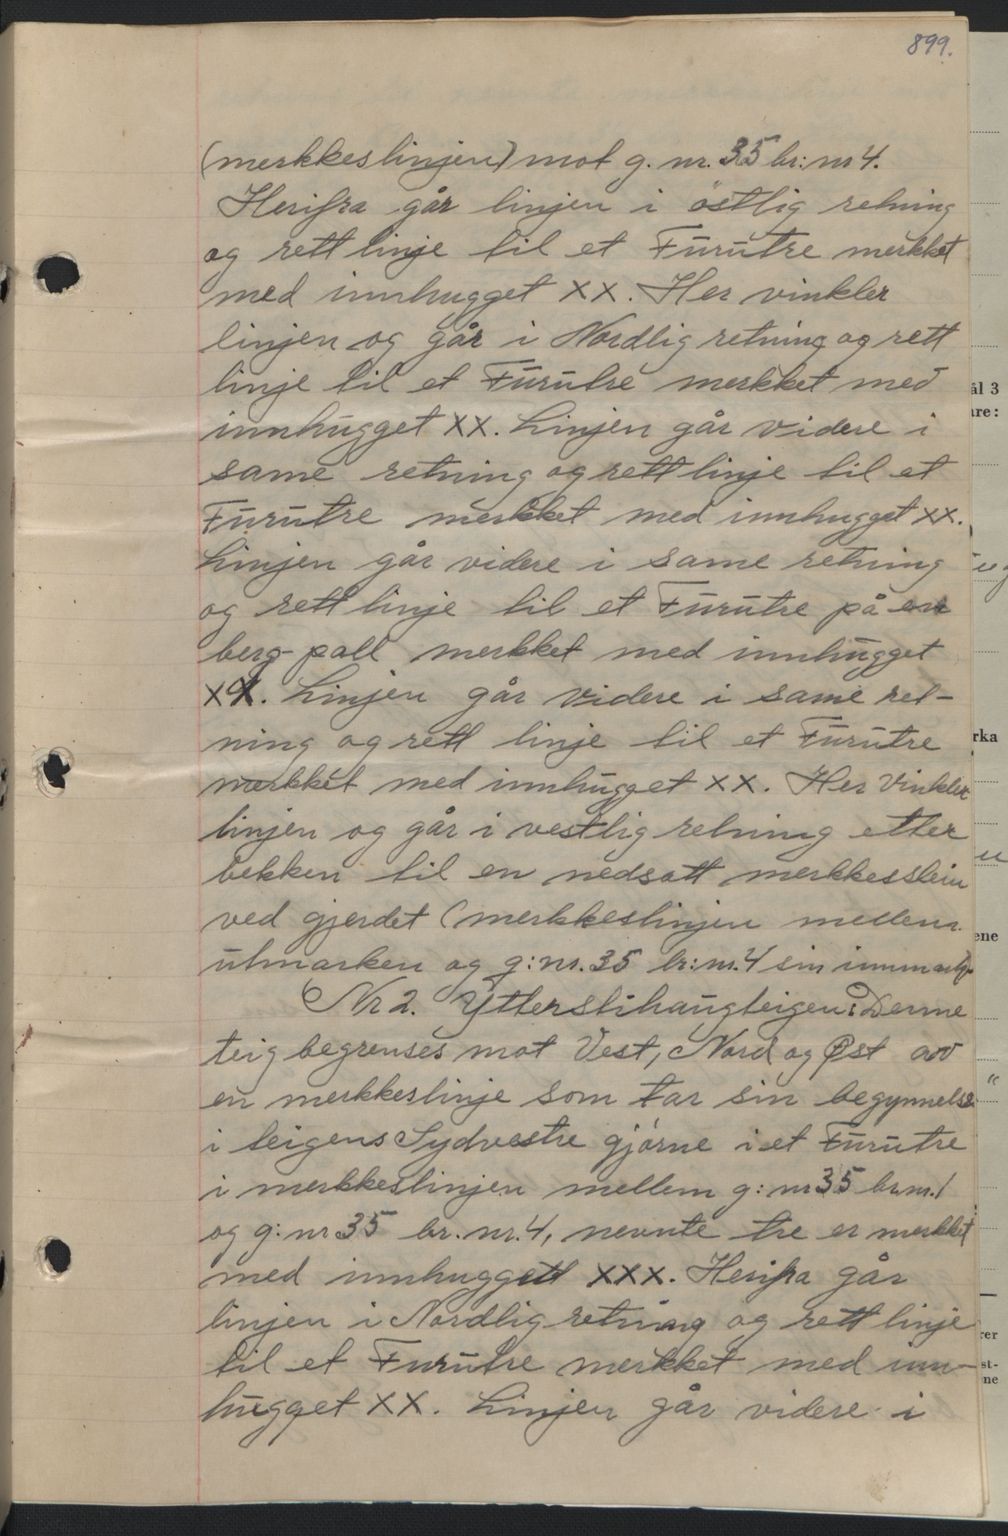 899.
(merkkeslinjen) mot g. nr. 35 br: nr 4.
Herifra går linjen i östlig retning
og rett linje til et Furutre merkket
med innhugget XX. Her vinkler
linjen og går i Nordlig retning og rett
linje til et Furutre merkket med
innhugget XX. Linjen går videre i
same retning og rett linje til et
Furutre merkket med innhugget XX.
Linjen går videre i same retning
og rett linje til et Furutre på en
berg-pall merkket med innhugget
XX. Linjen går videre i same ret-
ning og rett linje til et Furutre
merkket med innhugget XX. Her Vinkler
linjen og går i vestlig retning etter
bekken til en nedsatt merkkesstein
ved gjerdet (merkkeslinjen mellem
utmarken og g: nr. 35 br: nr. 4 sin innmark)
Nr 2. Ytterstihaugteigen: Denne
teig begrenses mot Vest, Nord og Øst av
en merkkeslinje som tar sin begynnelse
i teigens Sydvestre gjörne i et Furutre
i merkkeslinjen mellem g: nr 35 br. nr. 1
og g: nr 35 br. nr. 4, nevnte tre er merkket
med innhuggett XXX. Herifra går
linjen i Nordlig retning og rett linje
til et Furutre merkket med inn-
hugget XX. Linjen går videre i
ål 3
are:
rka
u
ene
"
rer
st-
ne